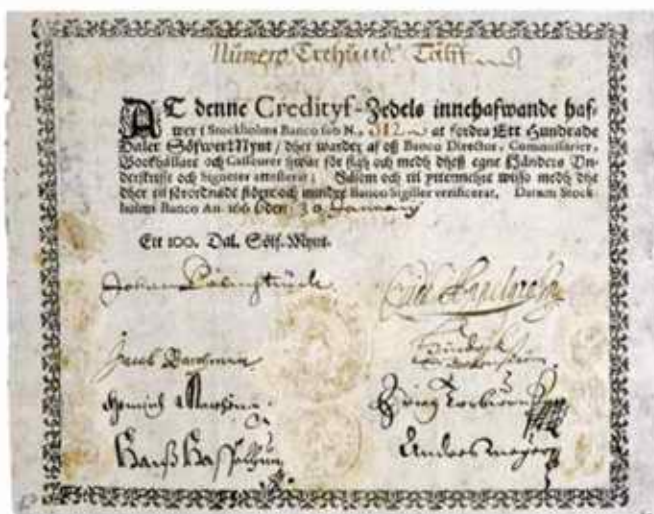 Numero Trehund. Tolff
AT denne Credityf-Zedels innehafwande haf-
wer i Stockholms Banco sub N. 312 at fordra Ett Hundrade
Daler SölfwerMynt / dher warder af oß Banco Director, Commissarier,
Bookhållare och Casseurer hwar för sigh och medh dheß egne Händers Un-
derskrifft och Signeter attesterat; Såsom och til yttermehre wisso medh dhe
dher til förordnade större och mindre Banco Sigiller verificerat. Datum Stock-
holms Banco An. 1666 den 30 January
Ett 100. Dal. Sölf. Mynt.
Johan Palmstruch
Jacob
Hinrich
Hanß
Anders Meijer